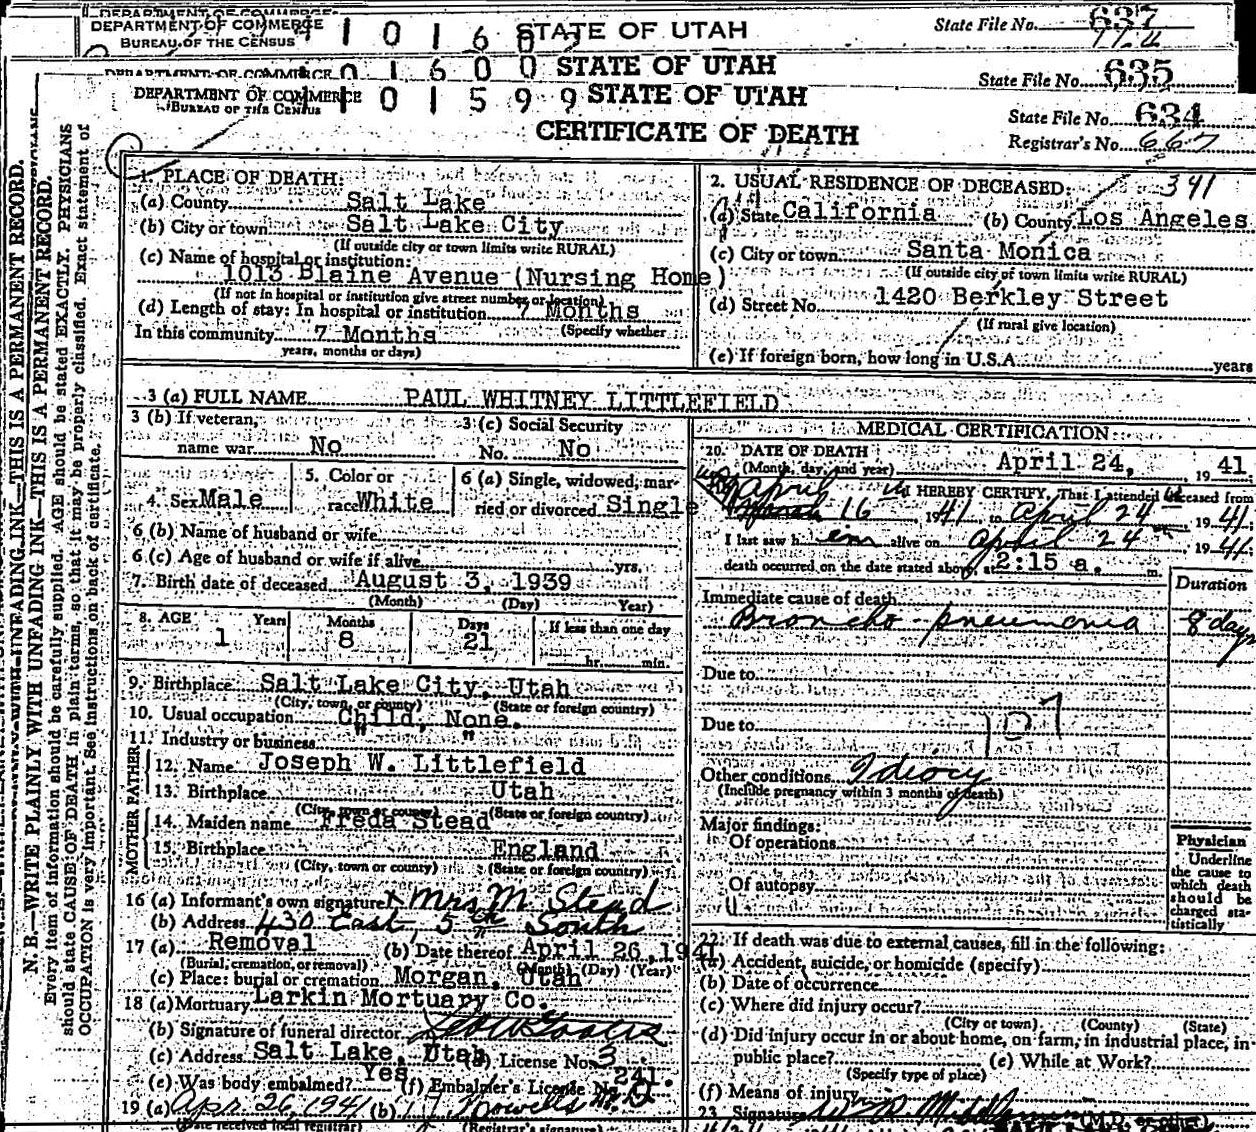 DEPARTMENT OF COMMERCE
BUREAU OF THE CENSUS
STATE OF UTAH
State File No. 637
STATE OF UTAH
State File No. 635
DEPARTMENT OF COMMERCE
BUREAU OF THE CENSUS
1 0 1 5 9 9
STATE OF UTAH
State File No. 634
CERTIFICATE OF DEATH
Registrar's No. 667
N. B.—WRITE PLAINLY WITH UNFADING INK—THIS IS A PERMANENT RECORD.
Every item of information should be carefully supplied. AGE should be stated EXACTLY. PHYSICIANS
should state CAUSE OF DEATH in plain terms, so that it may be properly classified. Exact statement of
OCCUPATION is very important. See instructions on back of certificate.
1. PLACE OF DEATH:
(a) County Salt Lake
(b) City or town Salt Lake City
(If outside city or town limits write RURAL)
(c) Name of hospital or institution:
1013 Blaine Avenue (Nursing Home)
(If not in hospital or institution give street number or location)
(d) Length of stay: In hospital or institution 7 Months
In this community 7 Months (Specify whether
years, months or days)
2. USUAL RESIDENCE OF DECEASED: 341
(a) State California (b) County Los Angeles
(c) City or town Santa Monica
(If outside city of town limits write RURAL)
(d) Street No. 1420 Berkley Street
(If rural give location)
(e) If foreign born, how long in U.S.A. years
3 (a) FULL NAME PAUL WHITNEY LITTLEFIELD
3 (b) If veteran, name war No
3 (c) Social Security No. No
4. Sex Male
5. Color or race White
6 (a) Single, widowed, married or divorced Single
6 (b) Name of husband or wife
6 (c) Age of husband or wife if alive yrs.
7. Birth date of deceased August 3, 1939
(Month) (Day) Year)
8. AGE Years Months Days If less than one day
1 8 21 hr. min.
9. Birthplace Salt Lake City, Utah
(City, town, or county) (State or foreign country)
10. Usual occupation Child, None.
11. Industry or business " "
FATHER
12. Name Joseph W. Littlefield
13. Birthplace Utah
(City, town or county) (State or foreign country)
MOTHER
14. Maiden name Freda Stead
15. Birthplace England
(City, town or county) (State or foreign country)
16 (a) Informant's own signature Mrs M Stead
(b) Address 430 East, 5th South
17 (a) Removal (b) Date thereof April 26, 1941
(Burial, cremation, or removal) (Month) (Day) (Year)
(c) Place: burial or cremation Morgan, Utah
18 (a) Mortuary Larkin Mortuary Co.
(b) Signature of funeral director
(c) Address Salt Lake, Utah (d) License No. 3
(e) Was body embalmed? Yes (f) Embalmer's License No. 241.
19 (a) Apr 26, 1941 (b)
(Date received local registrar) (Registrar's signature)
MEDICAL CERTIFICATION
20. DATE OF DEATH
(Month, day, and year) April 24, 19 41
I HEREBY CERTIFY, That I attended deceased from
April 16 1941 to April 24 1941
I last saw h em alive on April 24, 1941
death occurred on the date stated above, at 2:15 a. m.
Duration
Immediate cause of death
Broncho-pneumonia 8 days
Due to
Due to 107
Other conditions Idiocy
(Include pregnancy within 3 months of death)
Major findings:
Of operations
Of autopsy
Physician
Underline
the cause to
which death
should be
charged sta-
tistically
22. If death was due to external causes, fill in the following:
(a) Accident, suicide, or homicide (specify)
(b) Date of occurrence
(c) Where did injury occur?
(City or town) (County) (State)
(d) Did injury occur in or about home, on farm, in industrial place, in
public place? (e) While at Work?
(Specify type of place)
(f) Means of injury
23. Signature (M.D. or other)